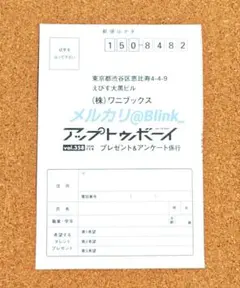 郵便はがき
1508482
東京都渋谷区恵比寿4-4-9
えびす大黒ビル
(株)ワニブックス
メルカリ@Blink_
アップトゥボーイ
vol.338
プレゼント&アンケート係行
住所
電話番号
氏名
年齢
職業・学年
希望する
タレント
プレゼント
第1希望
第2希望
第3希望